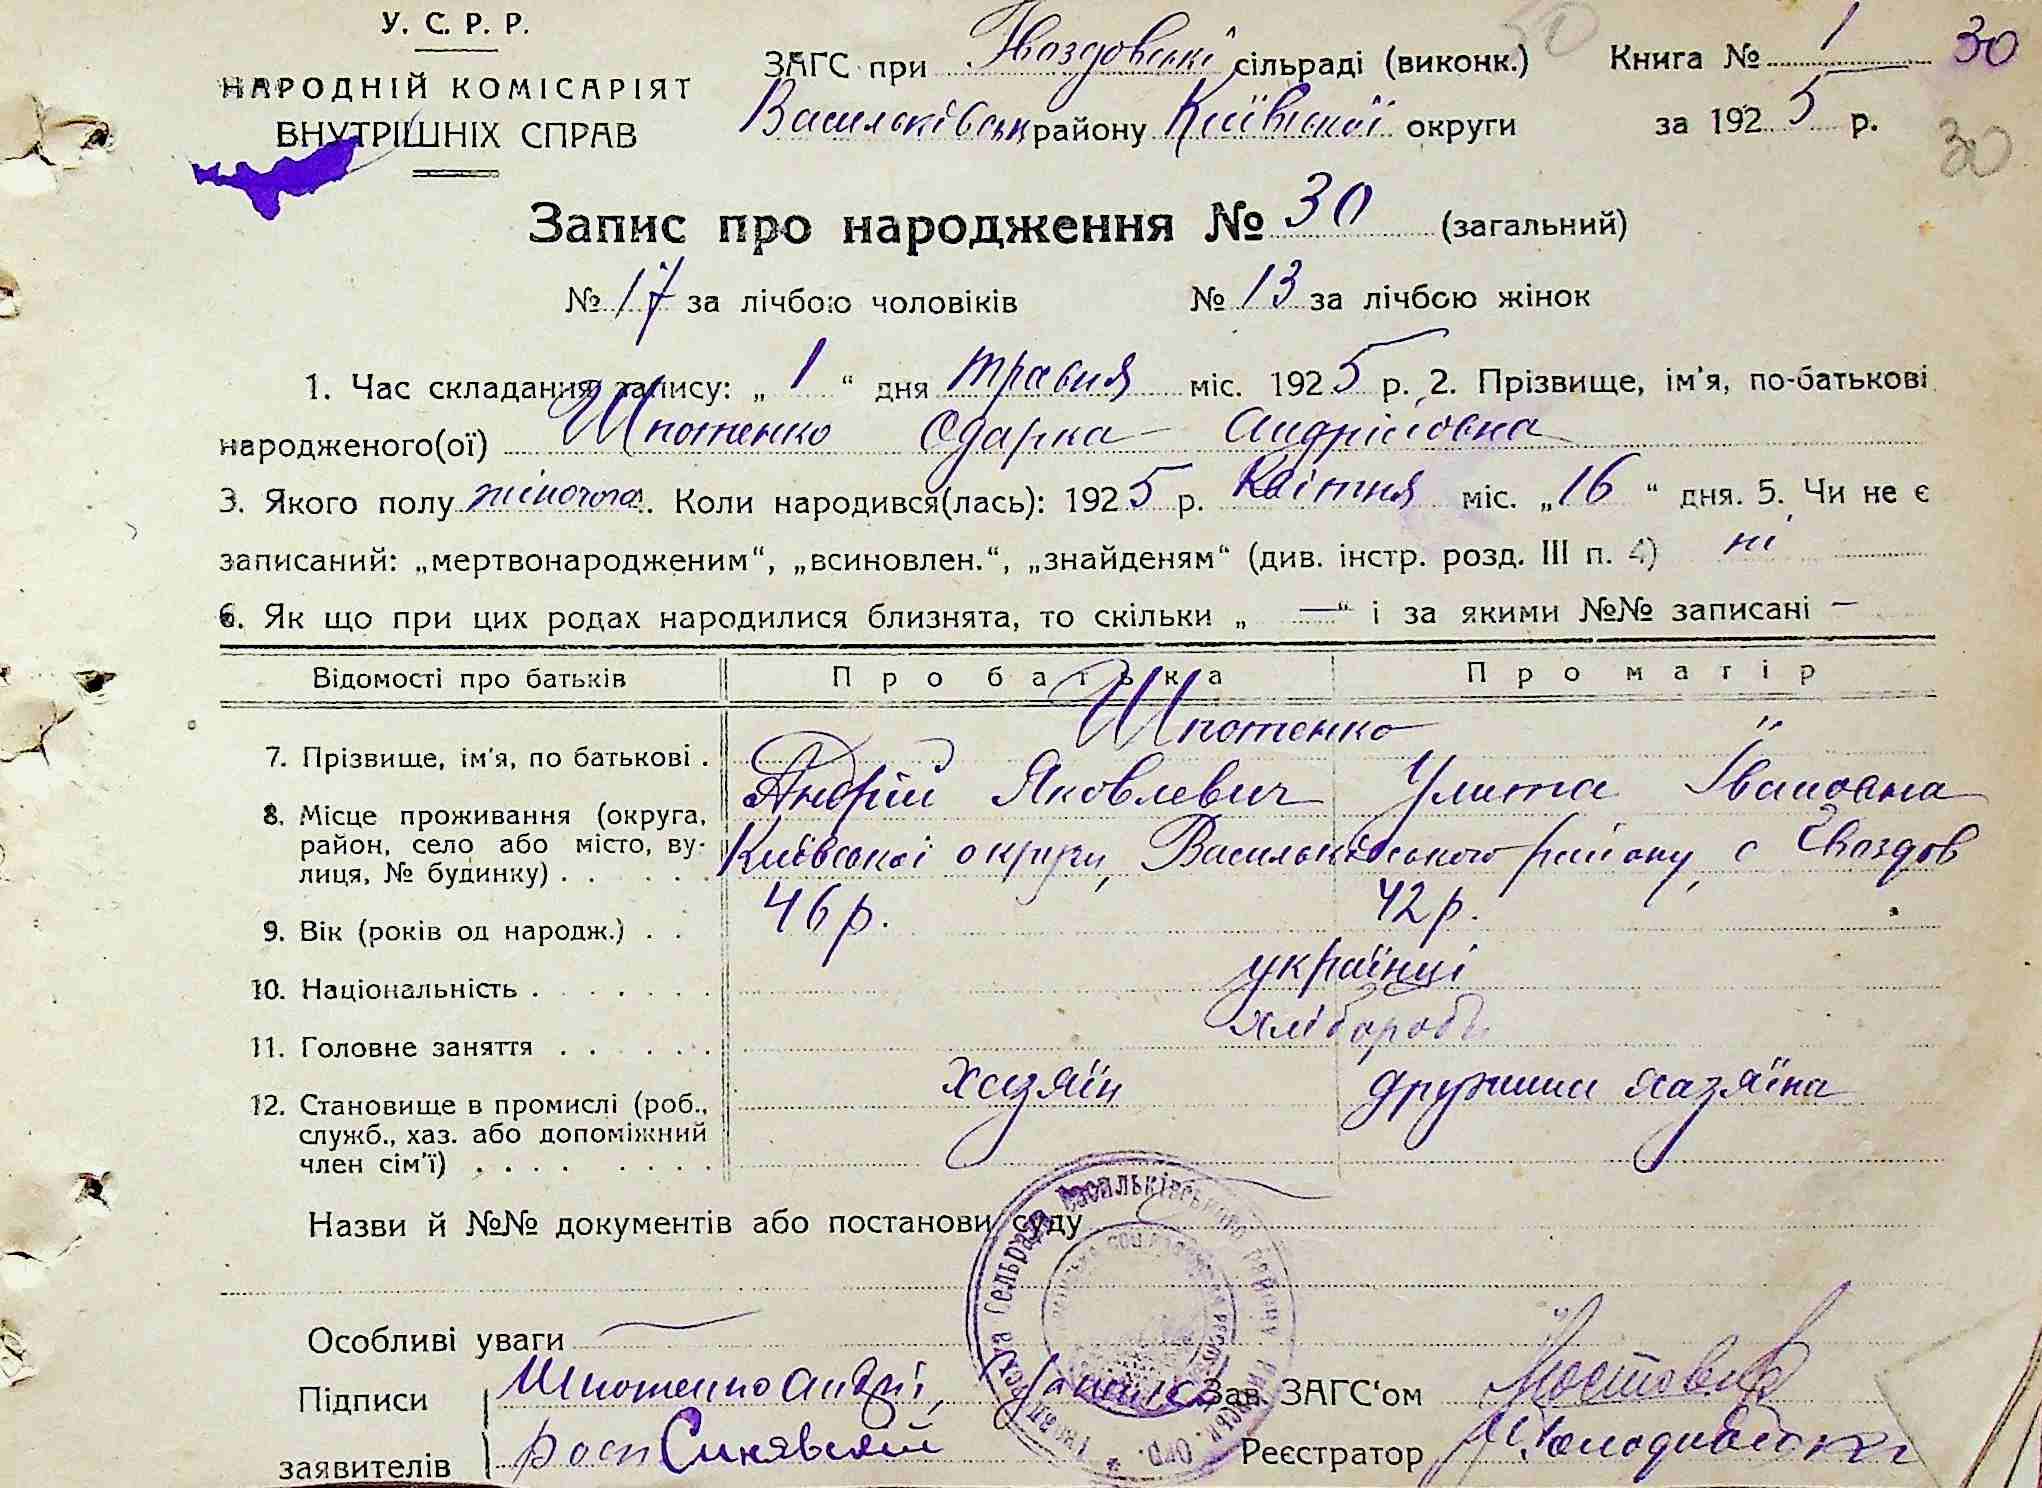 У. С. Р. Р.
НАРОДНІЙ КОМІСАРІЯТ
ВНУТРІШНІХ СПРАВ
ЗАГС при Гвоздовські сільраді (виконк.) Книга № 1 30
Васильківськ району Київської округи за 1925 р.
30
Запис про народження № 30 (загальний)
№ 17 за лічбою чоловіків № 13 за лічбою жінок
1. Час складання запису: „ 1 “ дня травня міс. 1925 р. 2. Прізвище, ім'я, по-батькові
народженого(ої) Шпотенко Одарка Андріїовна
3. Якого полу жіночого. Коли народився(лась): 1925 р. Квітня міс. „16 “ дня. 5. Чи не є
записаний: „мертвонародженим“, „всиновлен.“, „знайденям“ (див. інстр. розд. III п. 4) ні
6. Як що при цих родах народилися близнята, то скільки „ —“ і за якими №№ записані —
Відомості про батьків Про батька Про матір
7. Прізвище, ім'я, по батькові . Шпотенко "
Андрій Яковлевич Улита Івановна
8. Місце проживання (округа,
район, село або місто, ву-
лиця, № будинку) . . . . . Київської округи, Васильківського району, с Гвоздов
9. Вік (років од народж.) . . 46 р. 42 р.
10. Національність . . . . . . . українці
11. Головне заняття . . . . . . хлібороби
12. Становище в промислі (роб., хазяїн дружина хазяїна
служб., хаз. або допоміжний
член сім'ї) . . . . . . . .
Назви й №№ документів або постанови суду
Особливі уваги
Підписи Шпотенко Андрі, Зав. ЗАГС'ом
заявителів Синявский Реєстратор
сельрада Васильківського району